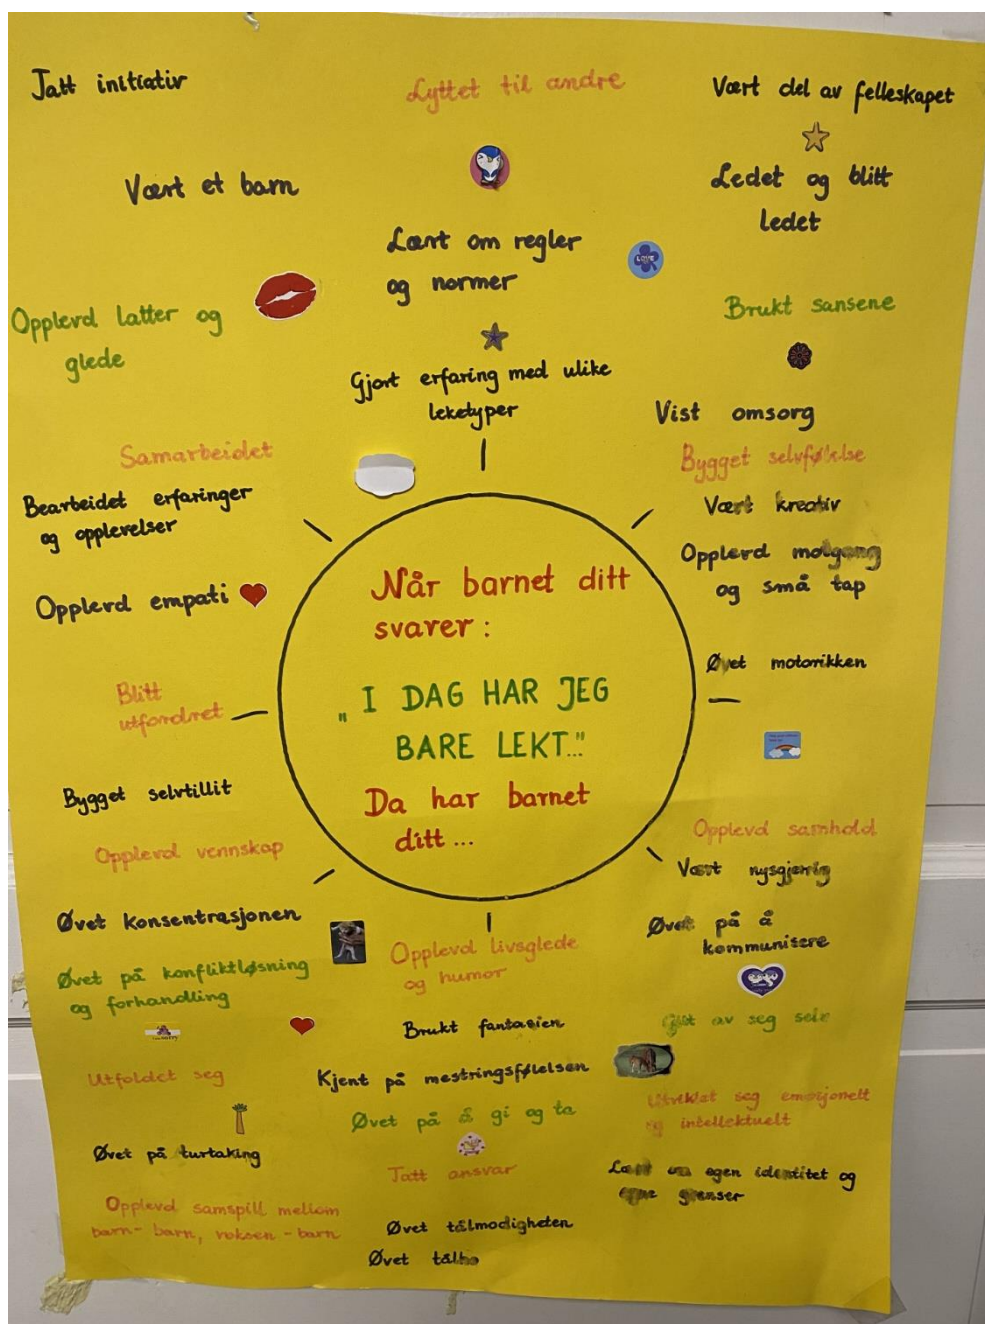 Tatt initiativ
Lyttet til andre
Vært del av felleskapet
Vært et barn
Ledet og blitt
ledet
Lært om regler
og normer
LOVE
Opplevd latter og
glede
Brukt sansene
Gjort erfaring med ulike
leketyper
Vist omsorg
Samarbeidet
Bygget selvfølelse
Bearbeidet erfaringer
og opplevelser
Vært kreativ
Opplevd motgang
og små tap
Opplevd empati
Øvet motorikken
Når barnet ditt
svarer:
„I DAG HAR JEG
BARE LEKT..."
Da har barnet
ditt...
Blitt
utfordret
Bygget selvtillit
Opplevd vennskap
Opplevd samhold
Vært nysgjerrig
Øvet konsentrasjonen
Øvet på å
kommunisere
Øvet på konfliktløsning
og forhandling
Opplevd livsglede
og humor
Brukt fantasien
Gitt av seg selv
Utfoldet seg
Kjent på mestringsfølelsen
Øvet på å gi og ta
Utviklet seg emosjonelt
og intellektuelt
Øvet på turtaking
Tatt ansvar
Lært om egen identitet og
egne grenser
Opplevd samspill mellom
barn-barn, voksen-barn
Øvet tålmodigheten
Øvet